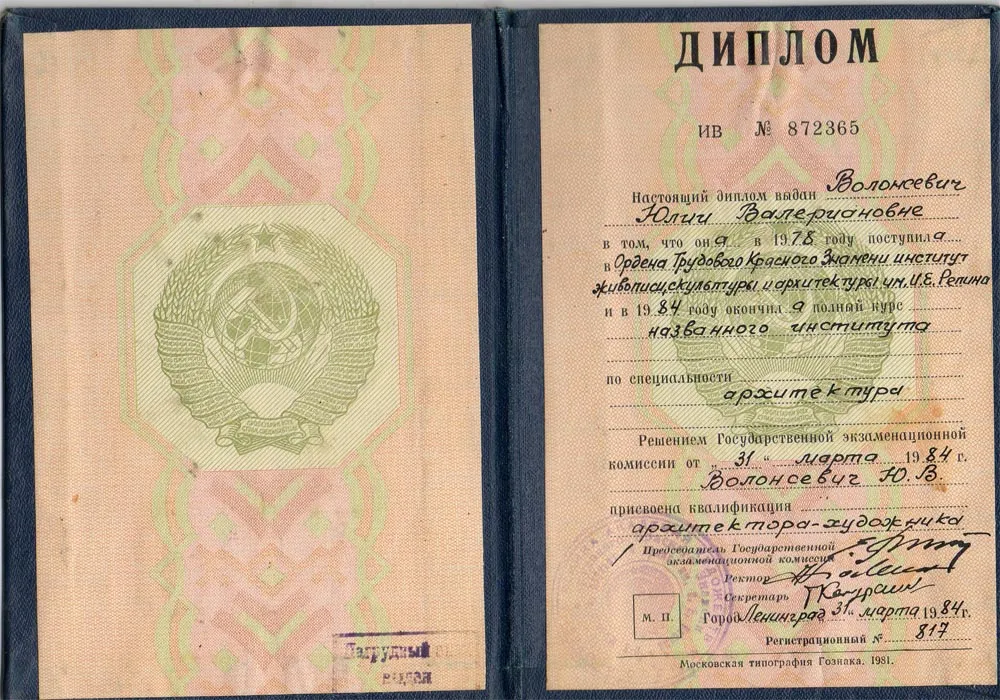 Нагрудный
выдан
ДИПЛОМ
ИВ № 872365
Настоящий диплом выдан Волонсевич
Юлии Валериановне
в том, что она в 1978 году поступила
в Ордена Трудового Красного Знамени институт
живописи, скульптуры и архитектуры им. И.Е. Репина
и в 1984 году окончила полный курс
названного института
по специальности
архитектура
Решением Государственной экзаменационной
комиссии от „31“ марта 1984 г.
Волонсевич Ю.В.
присвоена квалификация
архитектора-художника
Председатель Государственной
экзаменационной комиссии
Ректор
Секретарь
М. П.
Город Ленинград 31 „ марта 1984 г.
Регистрационный № 817
Московская типография Гознака. 1981.